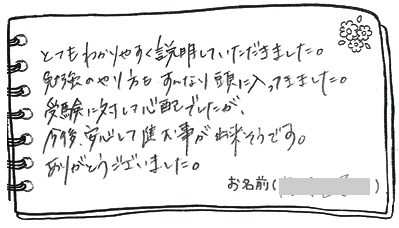 とてもわかりやすく説明していただきました。
勉強のやり方も すんなり頭に入ってきました。
受験に対して心配でしたが、
今後、安心して進む事が出来そうです。
ありがとうございました。
お名前( )